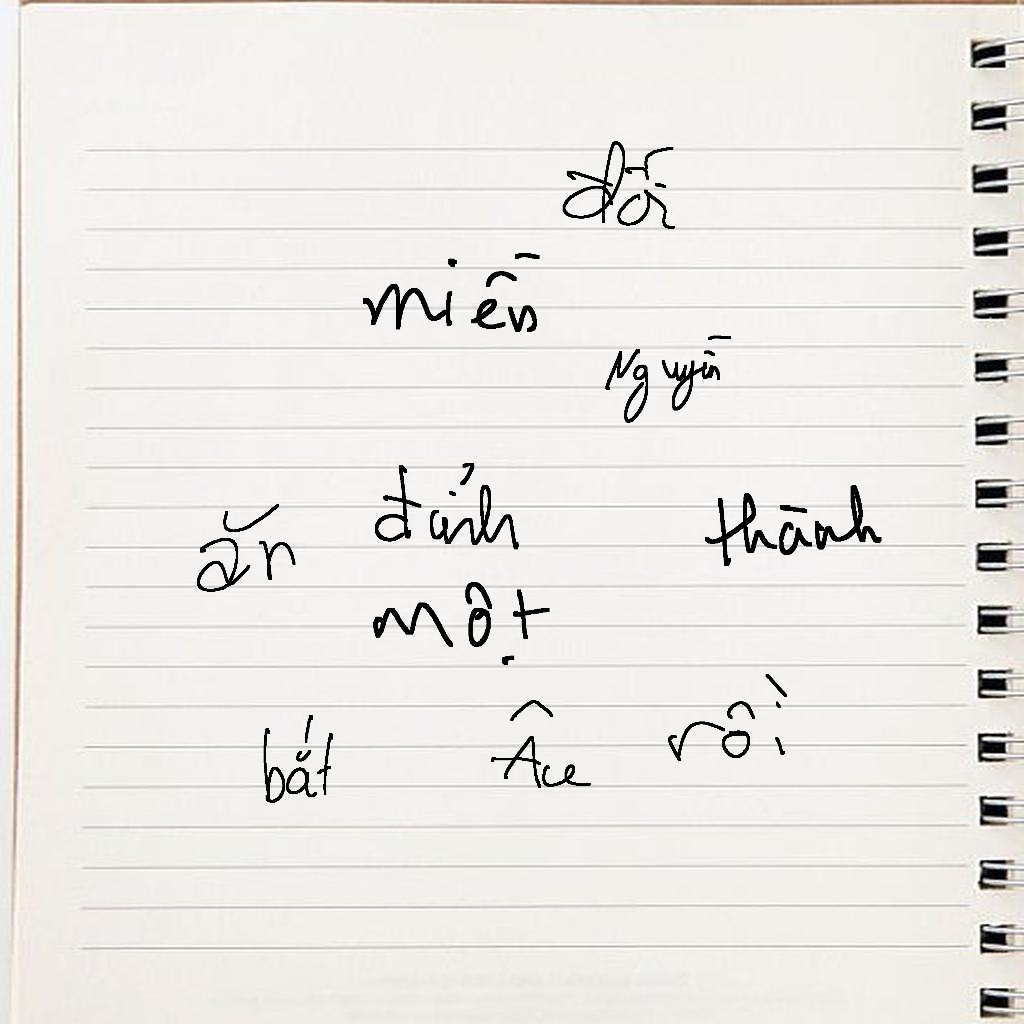 đời
miền
Nguyễn
ăn đảnh thành
một
bắt rồi